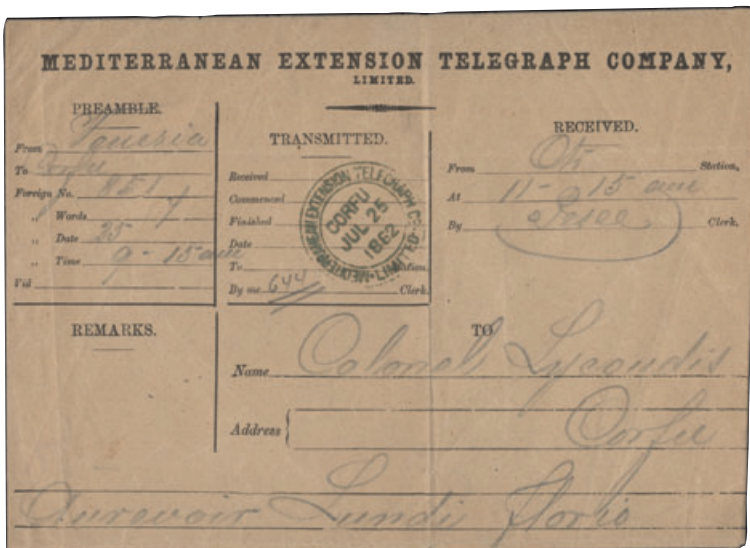 MEDITERRANEAN EXTENSION TELEGRAPH COMPANY,
LIMITED.
PREAMBLE.
From Venezia
To Corfu
Foreign No. 851
„ Words 7
„ Date 25
„ Time 9-15 am
Viâ
TRANSMITTED.
Received
Commenced
Finished
Date
To
By me 644 Clerk.
MEDITERRANEAN EXTENSION TELEGRAPH CO. LIMITED
CORFU
JUL 25
1862
RECEIVED.
From Station,
At 11-15 am
By Clerk.
REMARKS.
TO
Name Colonel
Address Corfu
Aurevoir Lundi Florio